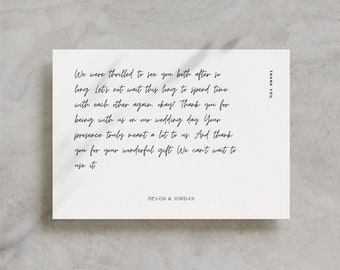 We were thrilled to see you both after so
long. Let's not wait this long to spend time
with each other again, okay! Thank you for
being with us on our wedding day. Your
presence truly meant a lot to us. And thank
you for your wonderful gift. We can't wait to
use it.
THANK YOU
DEVON & JORDAN